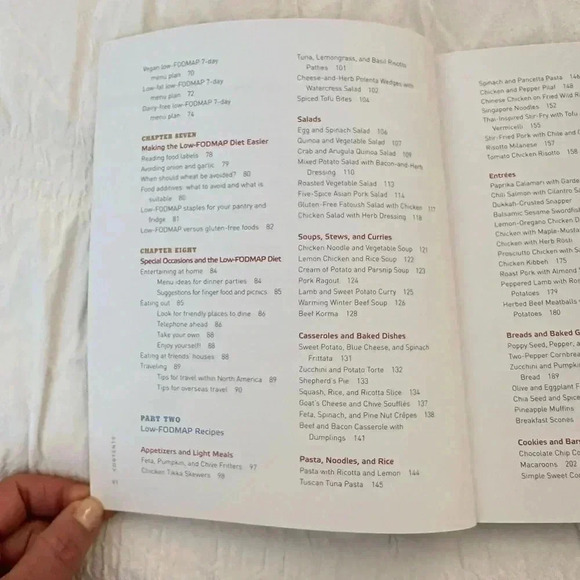 Vegan low-FODMAP 7-day
menu plan 70
Low-fat low-FODMAP 7-day
menu plan 72
Dairy-free low-FODMAP 7-day
menu plan 74
CHAPTER SEVEN
Making the Low-FODMAP Diet Easier
Reading food labels 78
Avoiding onion and garlic 79
When should wheat be avoided? 80
Food additives: what to avoid and what is
suitable 80
Low-FODMAP staples for your pantry and
fridge 81
Low-FODMAP versus gluten-free foods 82
CHAPTER EIGHT
Special Occasions and the Low-FODMAP Diet
Entertaining at home 84
Menu ideas for dinner parties 84
Suggestions for finger food and picnics 85
Eating out 85
Look for friendly places to dine 86
Telephone ahead 86
Take your own 88
Enjoy yourself! 88
Eating at friends' houses 88
Traveling 89
Tips for travel within North America 89
Tips for overseas travel 90
PART TWO
Low-FODMAP Recipes
Appetizers and Light Meals
Feta, Pumpkin, and Chive Fritters 97
Chicken Tikka Skewers 98
CONTENTS
Tuna, Lemongrass, and Basil Risotto
Patties 101
Cheese-and-Herb Polenta Wedges with
Watercress Salad 102
Spiced Tofu Bites 104
Salads
Egg and Spinach Salad 106
Quinoa and Vegetable Salad 107
Crab and Arugula Quinoa Salad 109
Mixed Potato Salad with Bacon-and-Herb
Dressing 110
Roasted Vegetable Salad 113
Five-Spice Asian Pork Salad 114
Gluten-Free Fattoush Salad with Chicken 117
Chicken Salad with Herb Dressing 118
Soups, Stews, and Curries
Chicken Noodle and Vegetable Soup 121
Lemon Chicken and Rice Soup 122
Cream of Potato and Parsnip Soup 123
Pork Ragout 124
Lamb and Sweet Potato Curry 125
Warming Winter Beef Soup 126
Beef Korma 128
Casseroles and Baked Dishes
Sweet Potato, Blue Cheese, and Spinach
Frittata 131
Zucchini and Potato Torte 132
Shepherd's Pie 133
Squash, Rice, and Ricotta Slice 134
Goat's Cheese and Chive Soufflés 137
Feta, Spinach, and Pine Nut Crêpes 138
Beef and Bacon Casserole with
Dumplings 141
Pasta, Noodles, and Rice
Pasta with Ricotta and Lemon 144
Tuscan Tuna Pasta 145
Spinach and Pancetta Pasta 146
Chicken and Pepper Pilaf 148
Chinese Chicken on Fried Wild Ri
Singapore Noodles 152
Thai-Inspired Stir-Fry with Tofu
Vermicelli 155
Stir-Fried Pork with Chile and
Risotto Milanese 157
Tomato Chicken Risotto 158
Entrées
Paprika Calamari with Garde
Chili Salmon with Cilantro Sa
Dukkah-Crusted Snapper
Balsamic Sesame Swordfish
Lemon-Oregano Chicken D
Chicken with Maple-Musta
Chicken with Herb Rösti
Prosciutto Chicken with S
Chicken Kibbeh 175
Roast Pork with Almond
Peppered Lamb with Ro
Potatoes 179
Herbed Beef Meatballs
Potatoes 180
Breads and Baked G
Poppy Seed, Pepper, a
Two-Pepper Cornbrea
Zucchini and Pumpkin
Bread 189
Olive and Eggplant F
Chia Seed and Spice
Pineapple Muffins
Breakfast Scones
Cookies and Bars
Chocolate Chip Co
Macaroons 202
Simple Sweet Coo